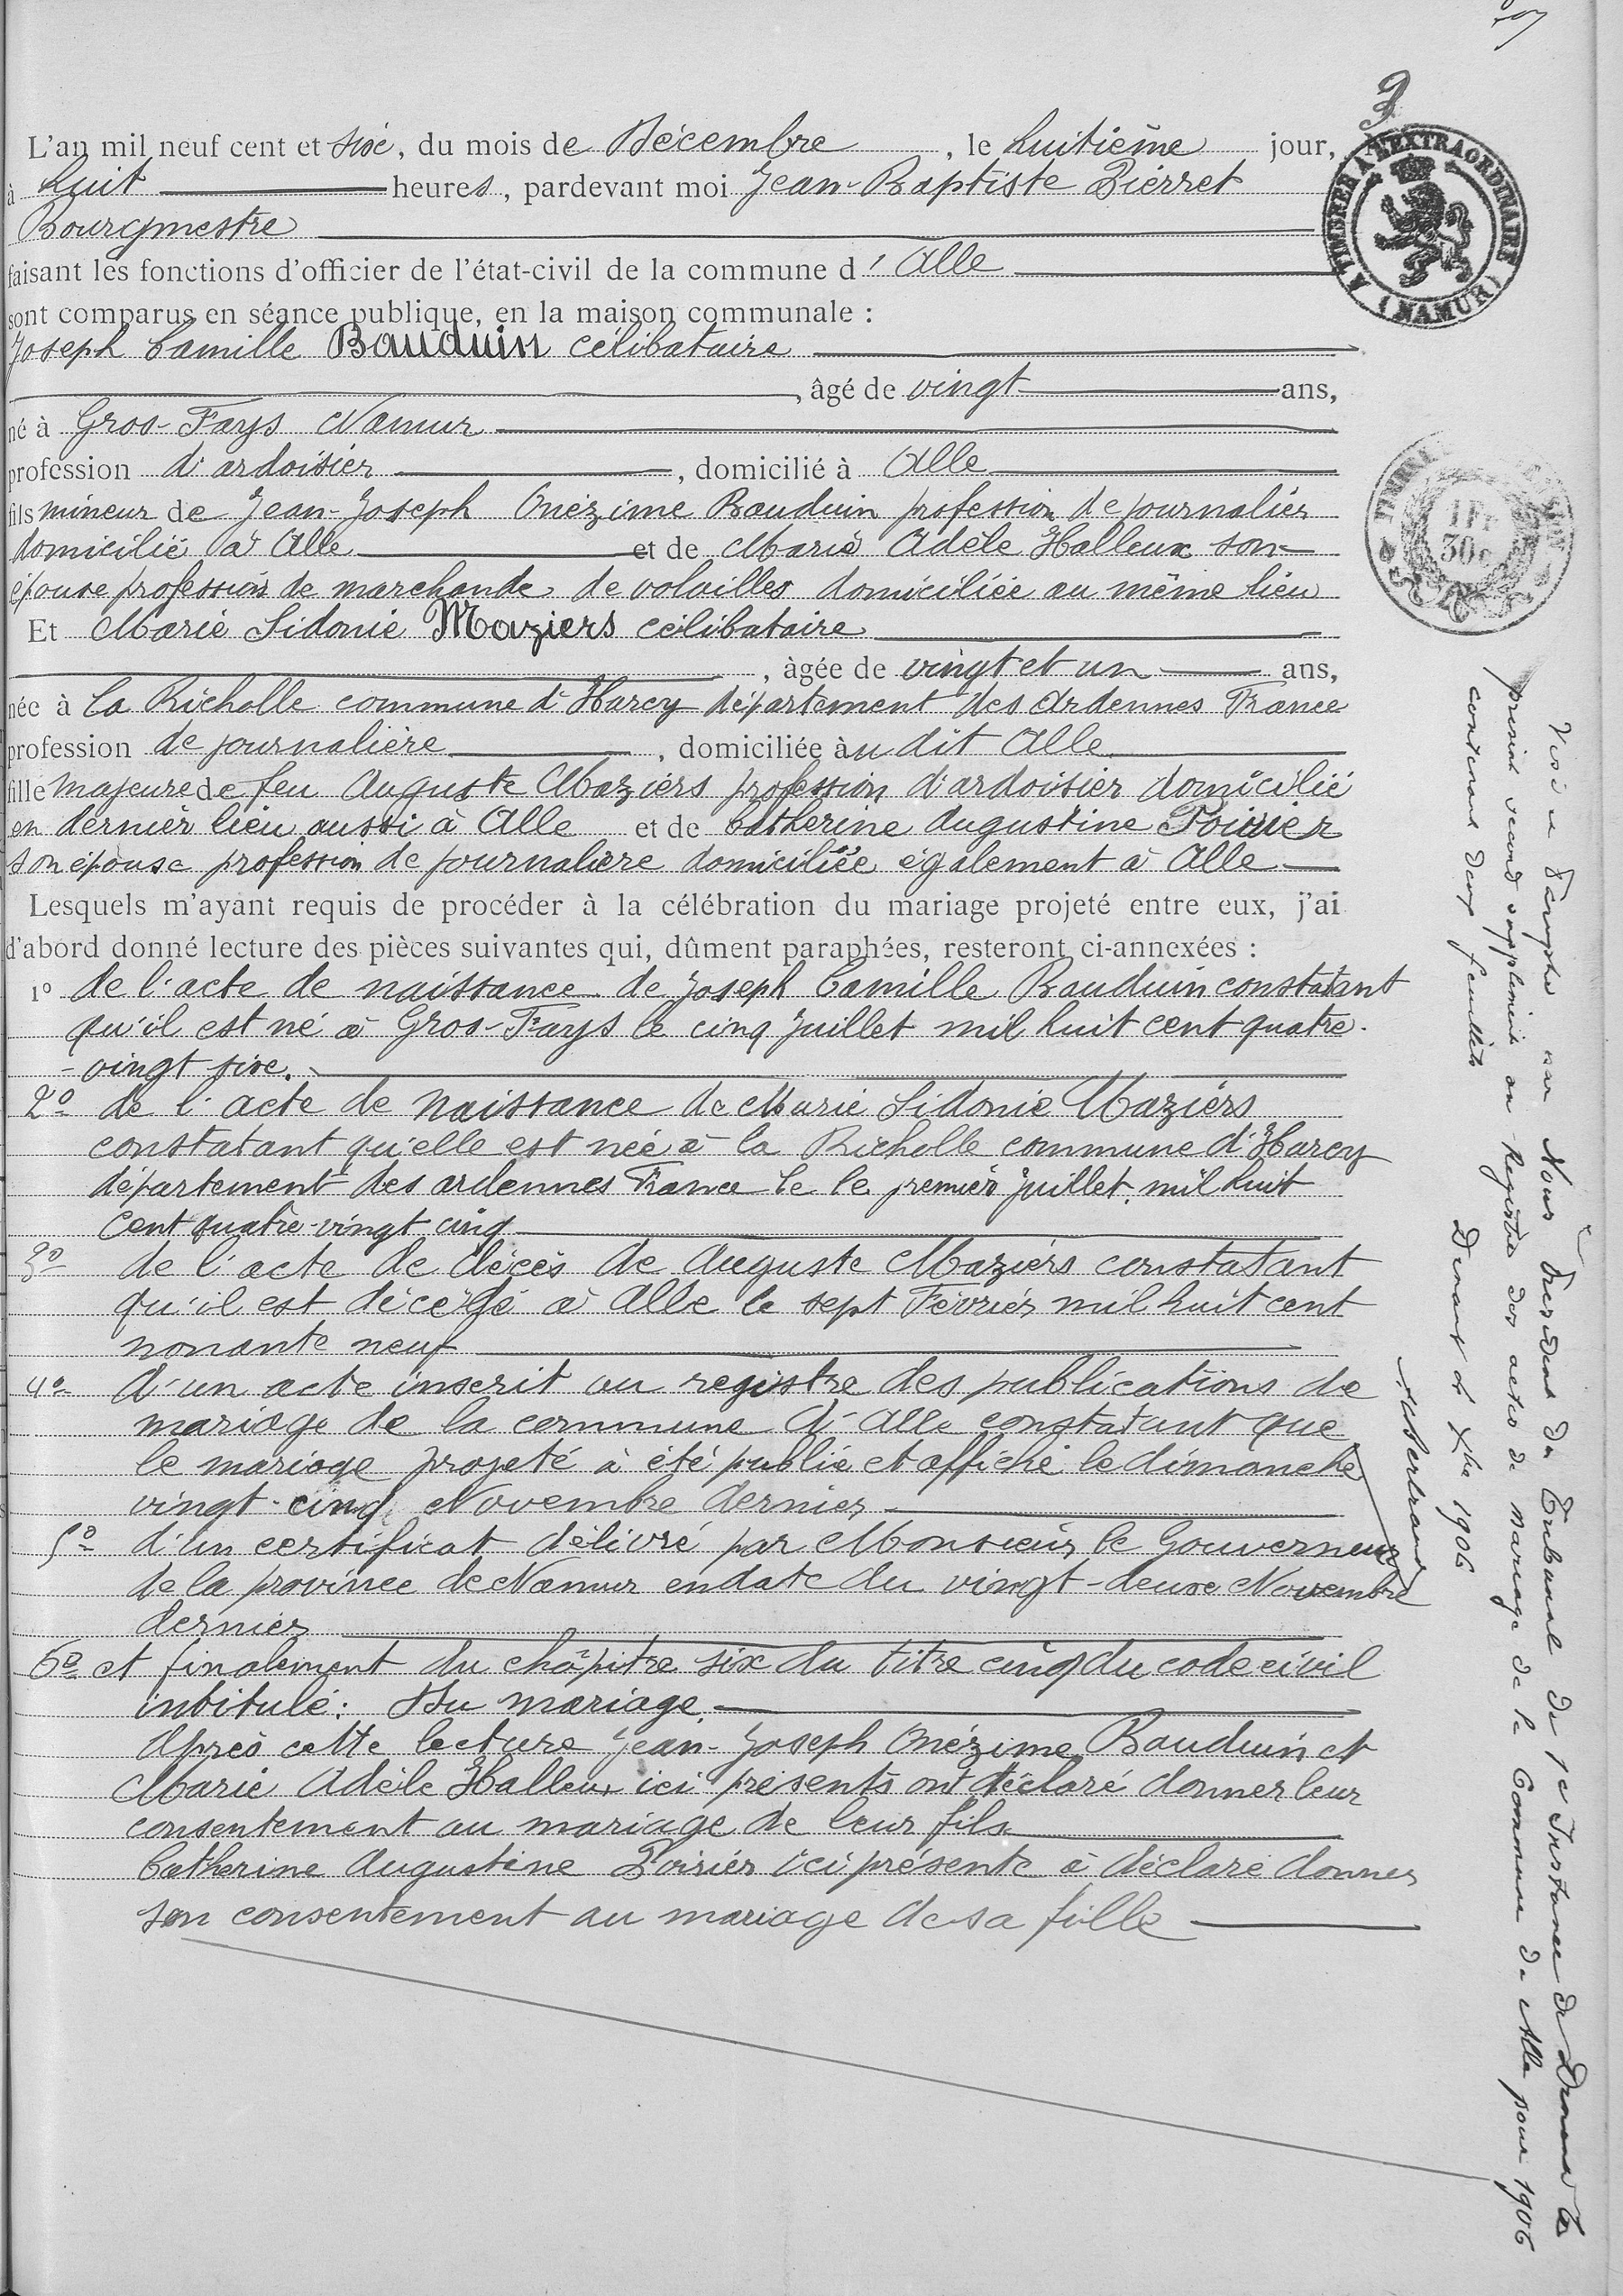 3
L'an mil neuf cent et sixe, du mois de Décembre, le huitième jour,
à huit heures, pardevant moi Jean-Baptiste Pierret
Bourgmestre
faisant les fonctions d'officier de l'état-civil de la commune d'Alle
sont comparus en séance publique, en la maison communale :
Joseph Camille Bauduin célibataire
, âgé de vingt ans,
né à Gros-Fays Namur
profession d'ardoisier, domicilié à Alle
fils mineur de Jean-Joseph Onézime Bauduin profession de journalier
domicilié à Alle et de Marie Adèle Halleux son
épouse profession de marchande de volailles domiciliée au même lieu
Et Marie Sidonie Maziers célibataire
, âgée de vingt et un ans,
née à la Richolle commune d'Harcy département des Ardennes France
profession de journalière, domiciliée àu dit Alle
fille majeure de feu Auguste Maziers profession d'ardoisier domicilié
en dernier lieu aussi à Alle et de Catherine Augustine Poirier
son épouse profession de journalière domiciliée également à Alle
Lesquels m'ayant requis de procéder à la célébration du mariage projeté entre eux, j'ai
d'abord donné lecture des pièces suivantes qui, dûment paraphées, resteront ci-annexées :
1° de l'acte de naissance de Joseph Camille Bauduin constatant
qu'il est né à Gros-Fays le cinq Juillet mil huit cent quatre-
-vingt sixe.
2° de l'acte de naissance de Marie Sidonie Maziers
constatant qu'elle est née à la Richolle commune d'Harcy
département des ardennes France le le premier Juillet mil huit
cent quatre-vingt cinq
3° de l'acte de décès de Auguste Maziers constatant
qu'il est décédé à Alle le sept Février mil huit cent
nonante neuf
4° d'un acte inscrit au registre des publications de
mariage de la commune d'Alle constatant que
le mariage projeté à été publié et affiché le dimanche
vingt-cinq Novembre dernier
5° d'un certificat délivré par Monsieur le Gouverneur
de la province de Namur en date du vingt-deuxe Novembre
dernier
6° et finalement du châpitre six du titre cinq du code civil
intitulé: Du mariage
Après cette lecture Jean-Joseph Onézime Bauduin et
Marie Adèle Halleux ici présents ont déclaré donner leur
consentement au mariage de leur fils
Catherine Augustine Poirier ici présente à déclaré donner
son consentement au mariage de sa fille
A TIMBRER A L'EXTRAORDINAIRE
(NAMUR)
1 Fr
30c
par Nous Président du Tribunal de 1e Instance de Dinant le
présent second supplément au Registre des actes de mariage de la Commune de Alle pour 1906
contenant deux feuillets
Dinant le Xbre 1906